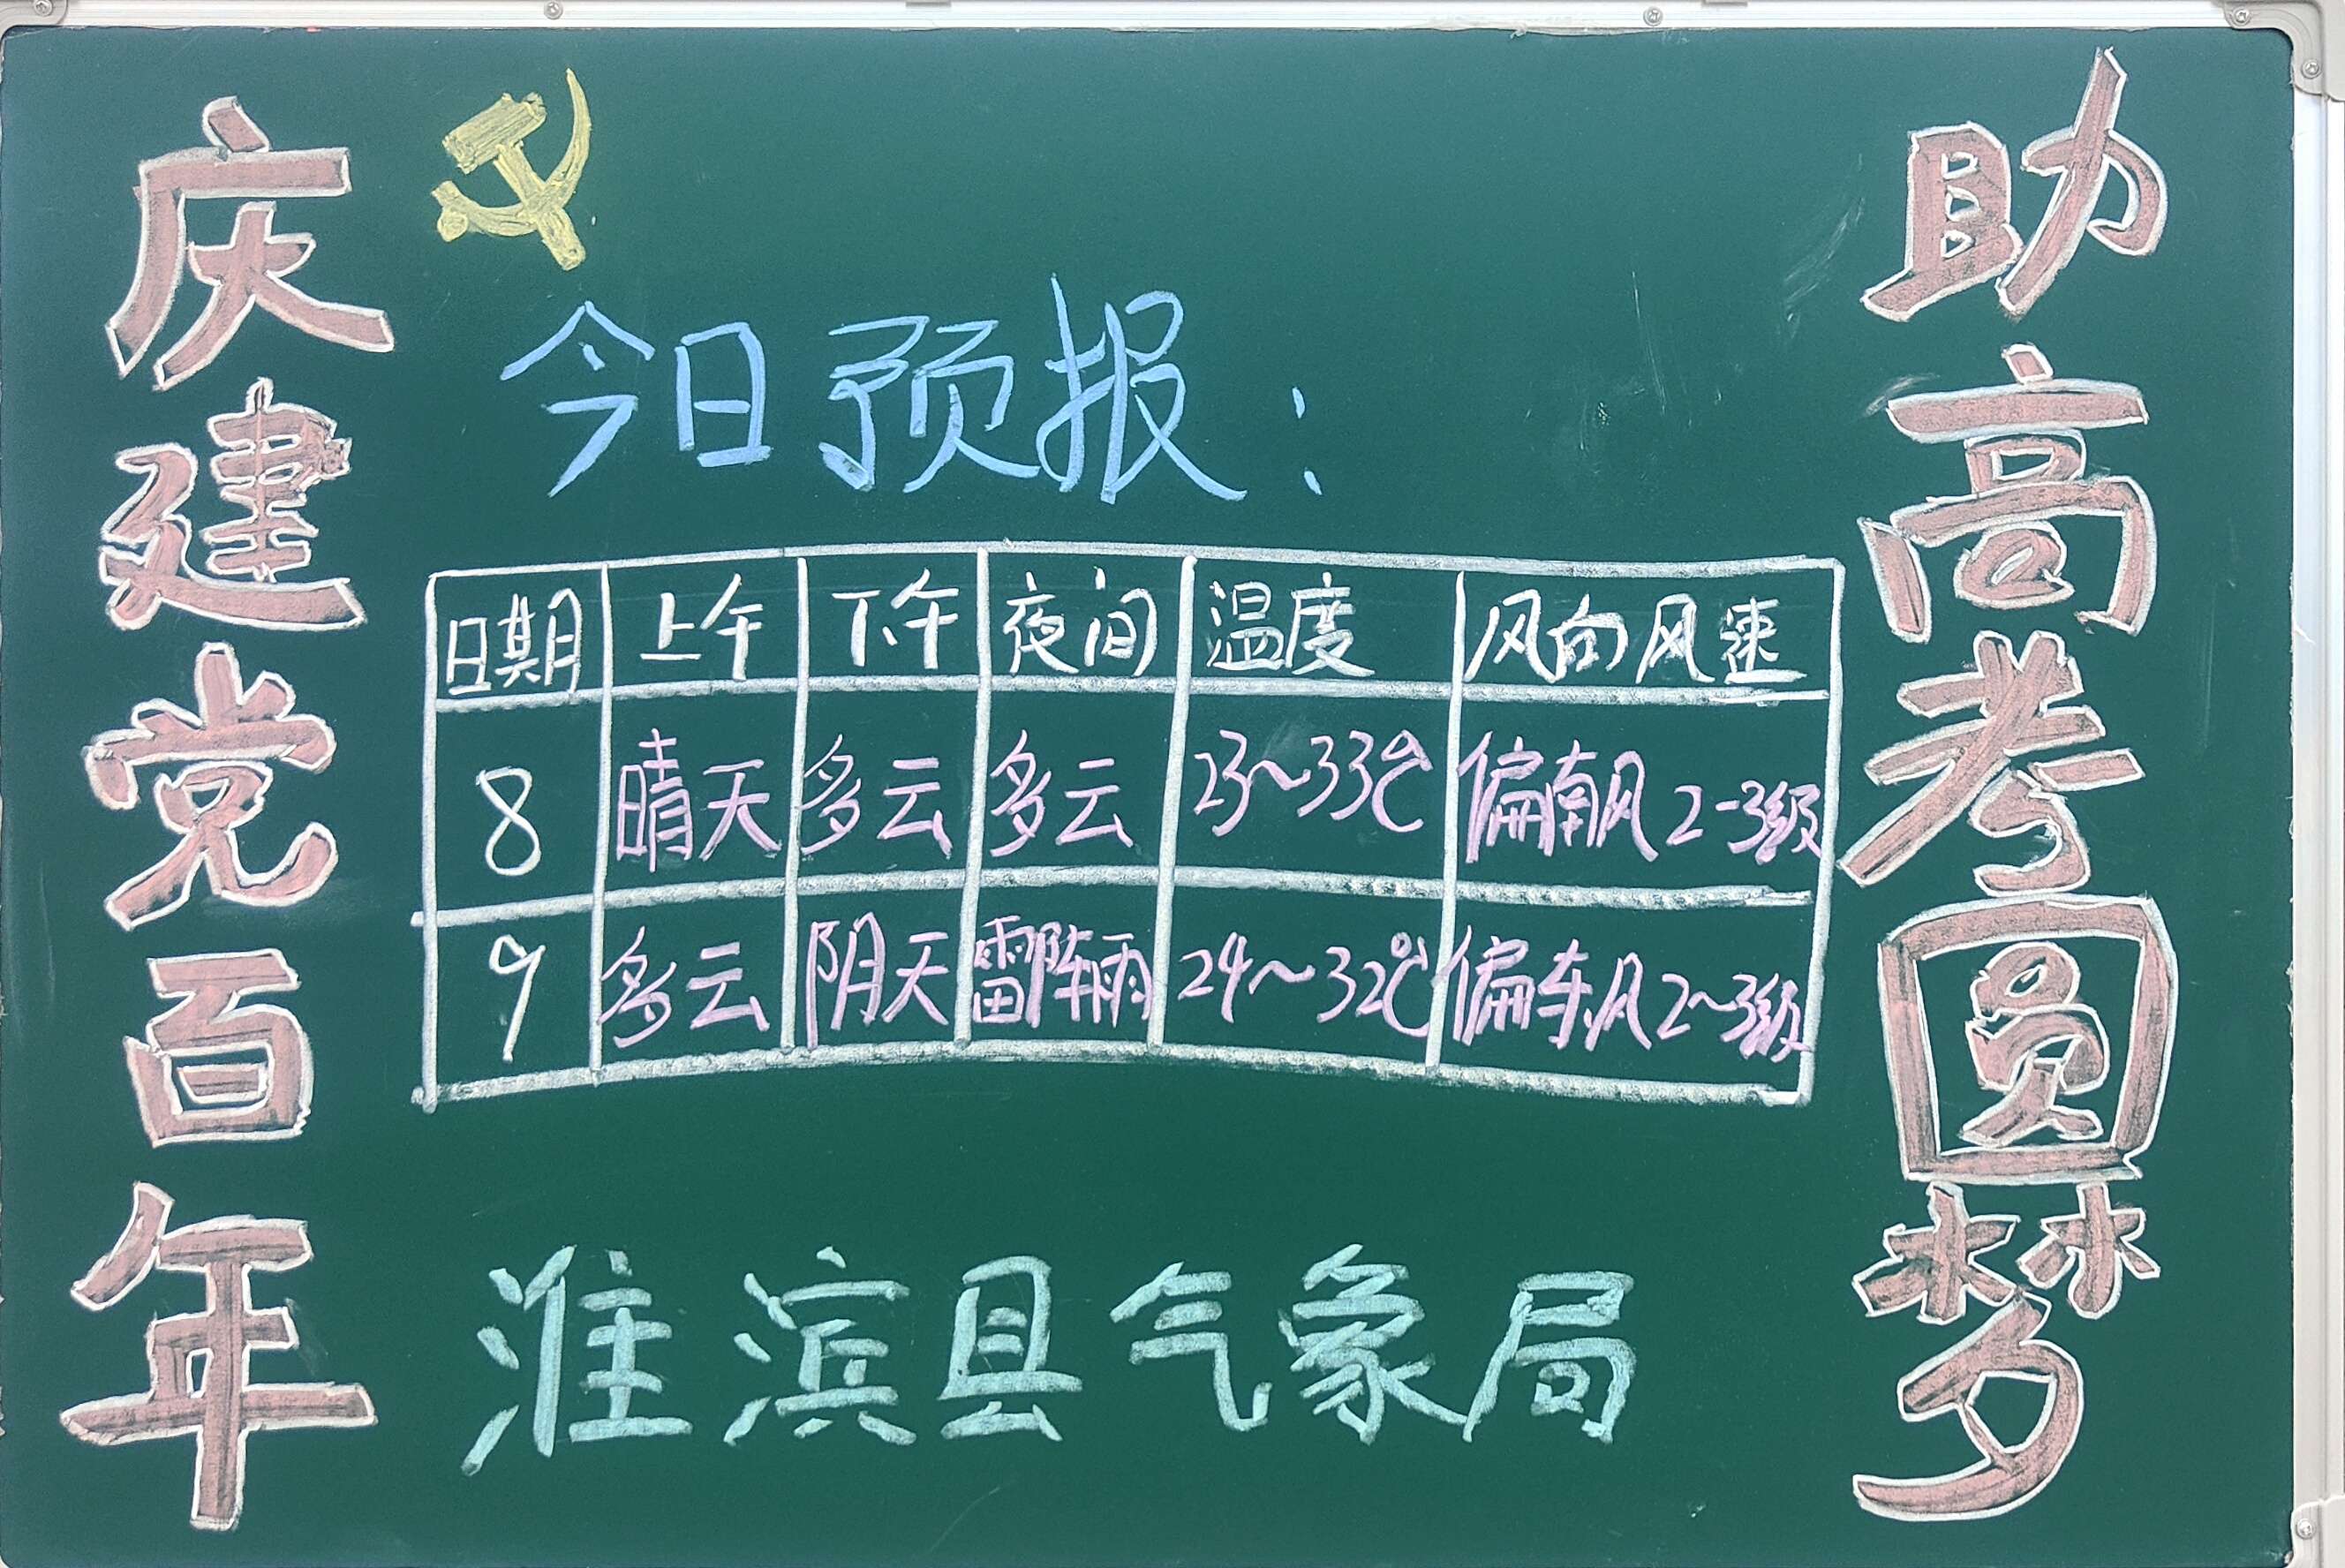 庆建党百年
今日预报：
日期 上午 下午 夜间 温度 风向风速
8 晴天 多云 多云 23~33℃ 偏南风2-3级
9 多云 阴天 雷阵雨 24~32℃ 偏东风2~3级
淮滨县气象局
助高考圆梦